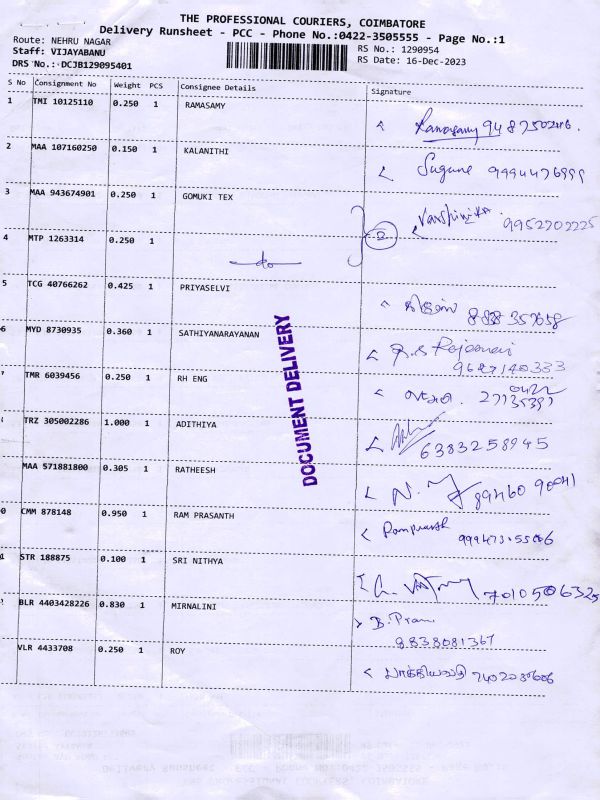 THE PROFESSIONAL COURIERS, COIMBATORE
Delivery Runsheet - PCC - Phone No.:0422-3505555 - Page No.:1
Route: NEHRU NAGAR
Staff: VIJAYABANU
DRS No.: DCJB129095401
RS No.: 1290954
RS Date: 16-Dec-2023
S No Consignment No Weight PCS Consignee Details Signature
1 TMI 10125110 0.250 1 RAMASAMY Ramasamy
2 MAA 107160250 0.150 1 KALANITHI Suguna
3 MAA 943674901 0.250 1 GOMUKI TEX Varshinika 9952702225
4 MTP 1263314 0.250 1 do 2
5 TCG 40766262 0.425 1 PRIYASELVI
6 MYD 8730935 0.360 1 SATHIYANARAYANAN
7 TMR 6039456 0.250 1 RH ENG 0422
TRZ 305002286 1.000 1 ADITHIYA 6383258945
MAA 571881800 0.305 1 RATHEESH
0 CMM 878148 0.950 1 RAM PRASANTH
1 STR 188875 0.100 1 SRI NITHYA 7010506325
BLR 4403428226 0.830 1 MIRNALINI B. Pram
8838081367
VLR 4433708 0.250 1 ROY
DOCUMENT DELIVERY